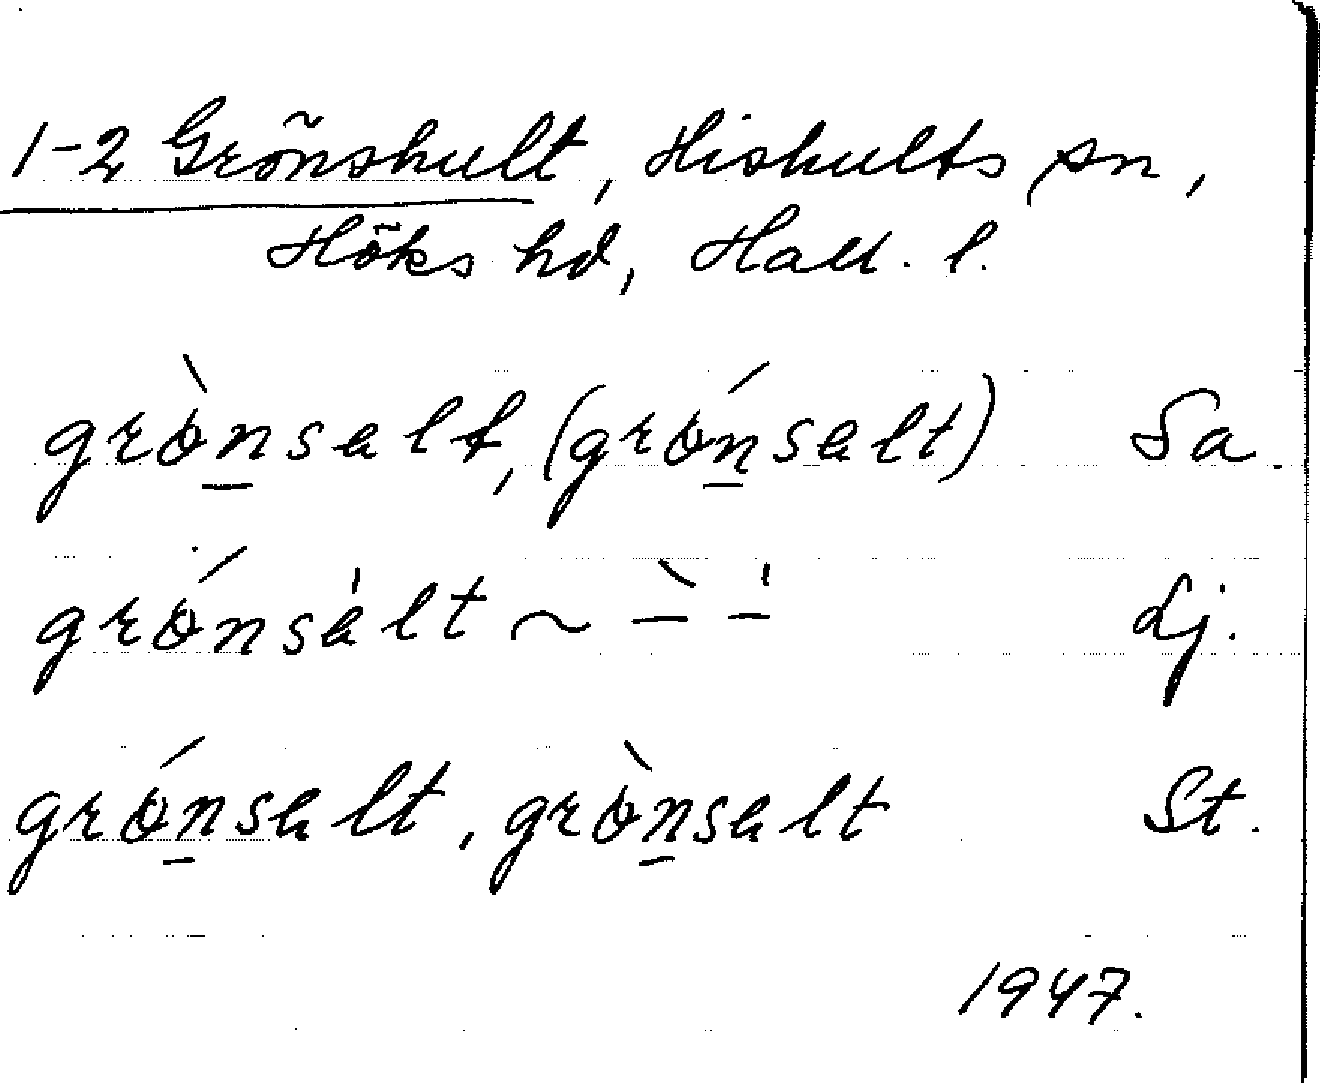 1-2 Grönshult, Hishults sn,
Höks hd, Hall. l.
grò̱nsalt, (gró̱nsalt) Sa.
grónsa̍lt ~ –̀ –̍ Lj.
gró̱nsalt, grò̱nsalt St.
1947.